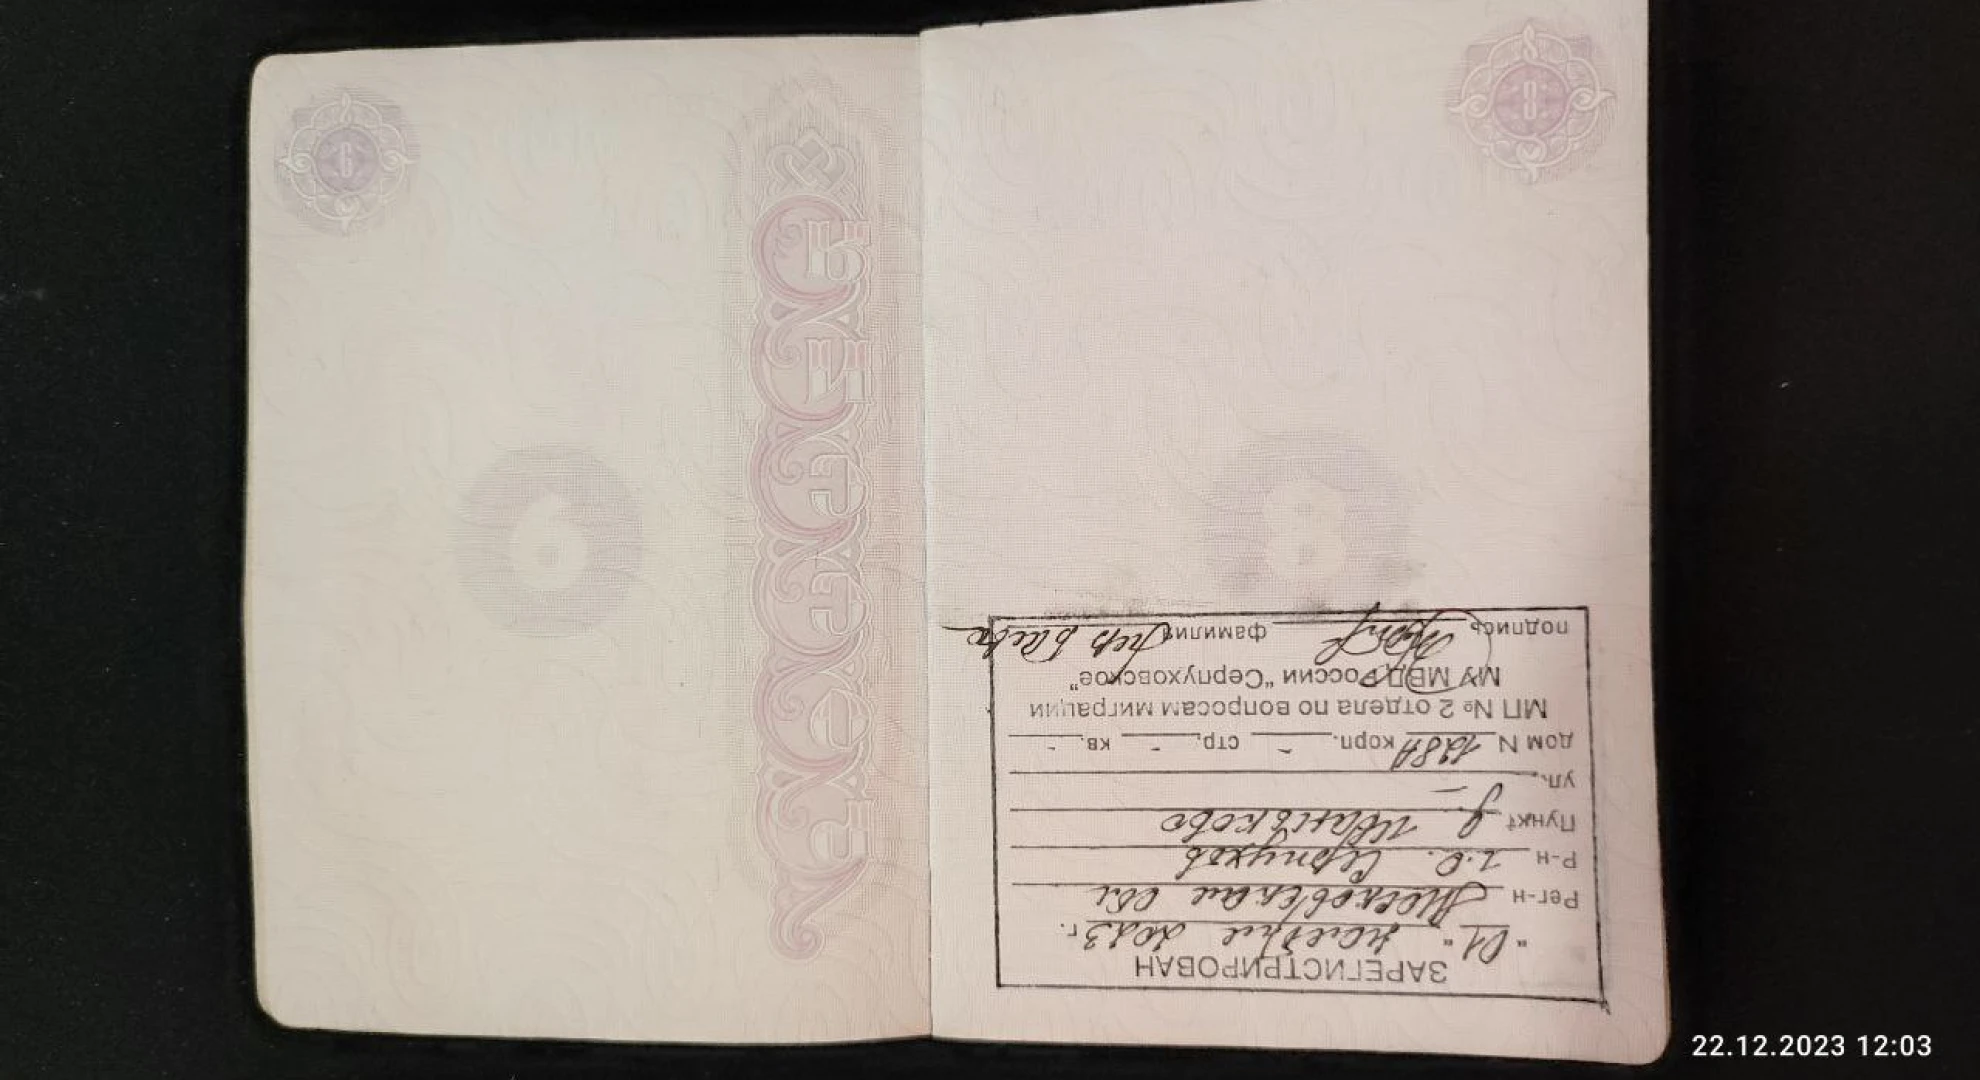 ЗАРЕГИСТРИРОВАН
"01" ноября 2023 г.
Рег-н Московская обл
Р-н г.о. Серпухов
Пункт д. Иваньково
ул. –
дом N 128А корп. – стр. – кв. –
МП № 2 отдела по вопросам миграции
МУ МВД России "Серпуховское"
подпись фамилия
6
8
22.12.2023 12:03